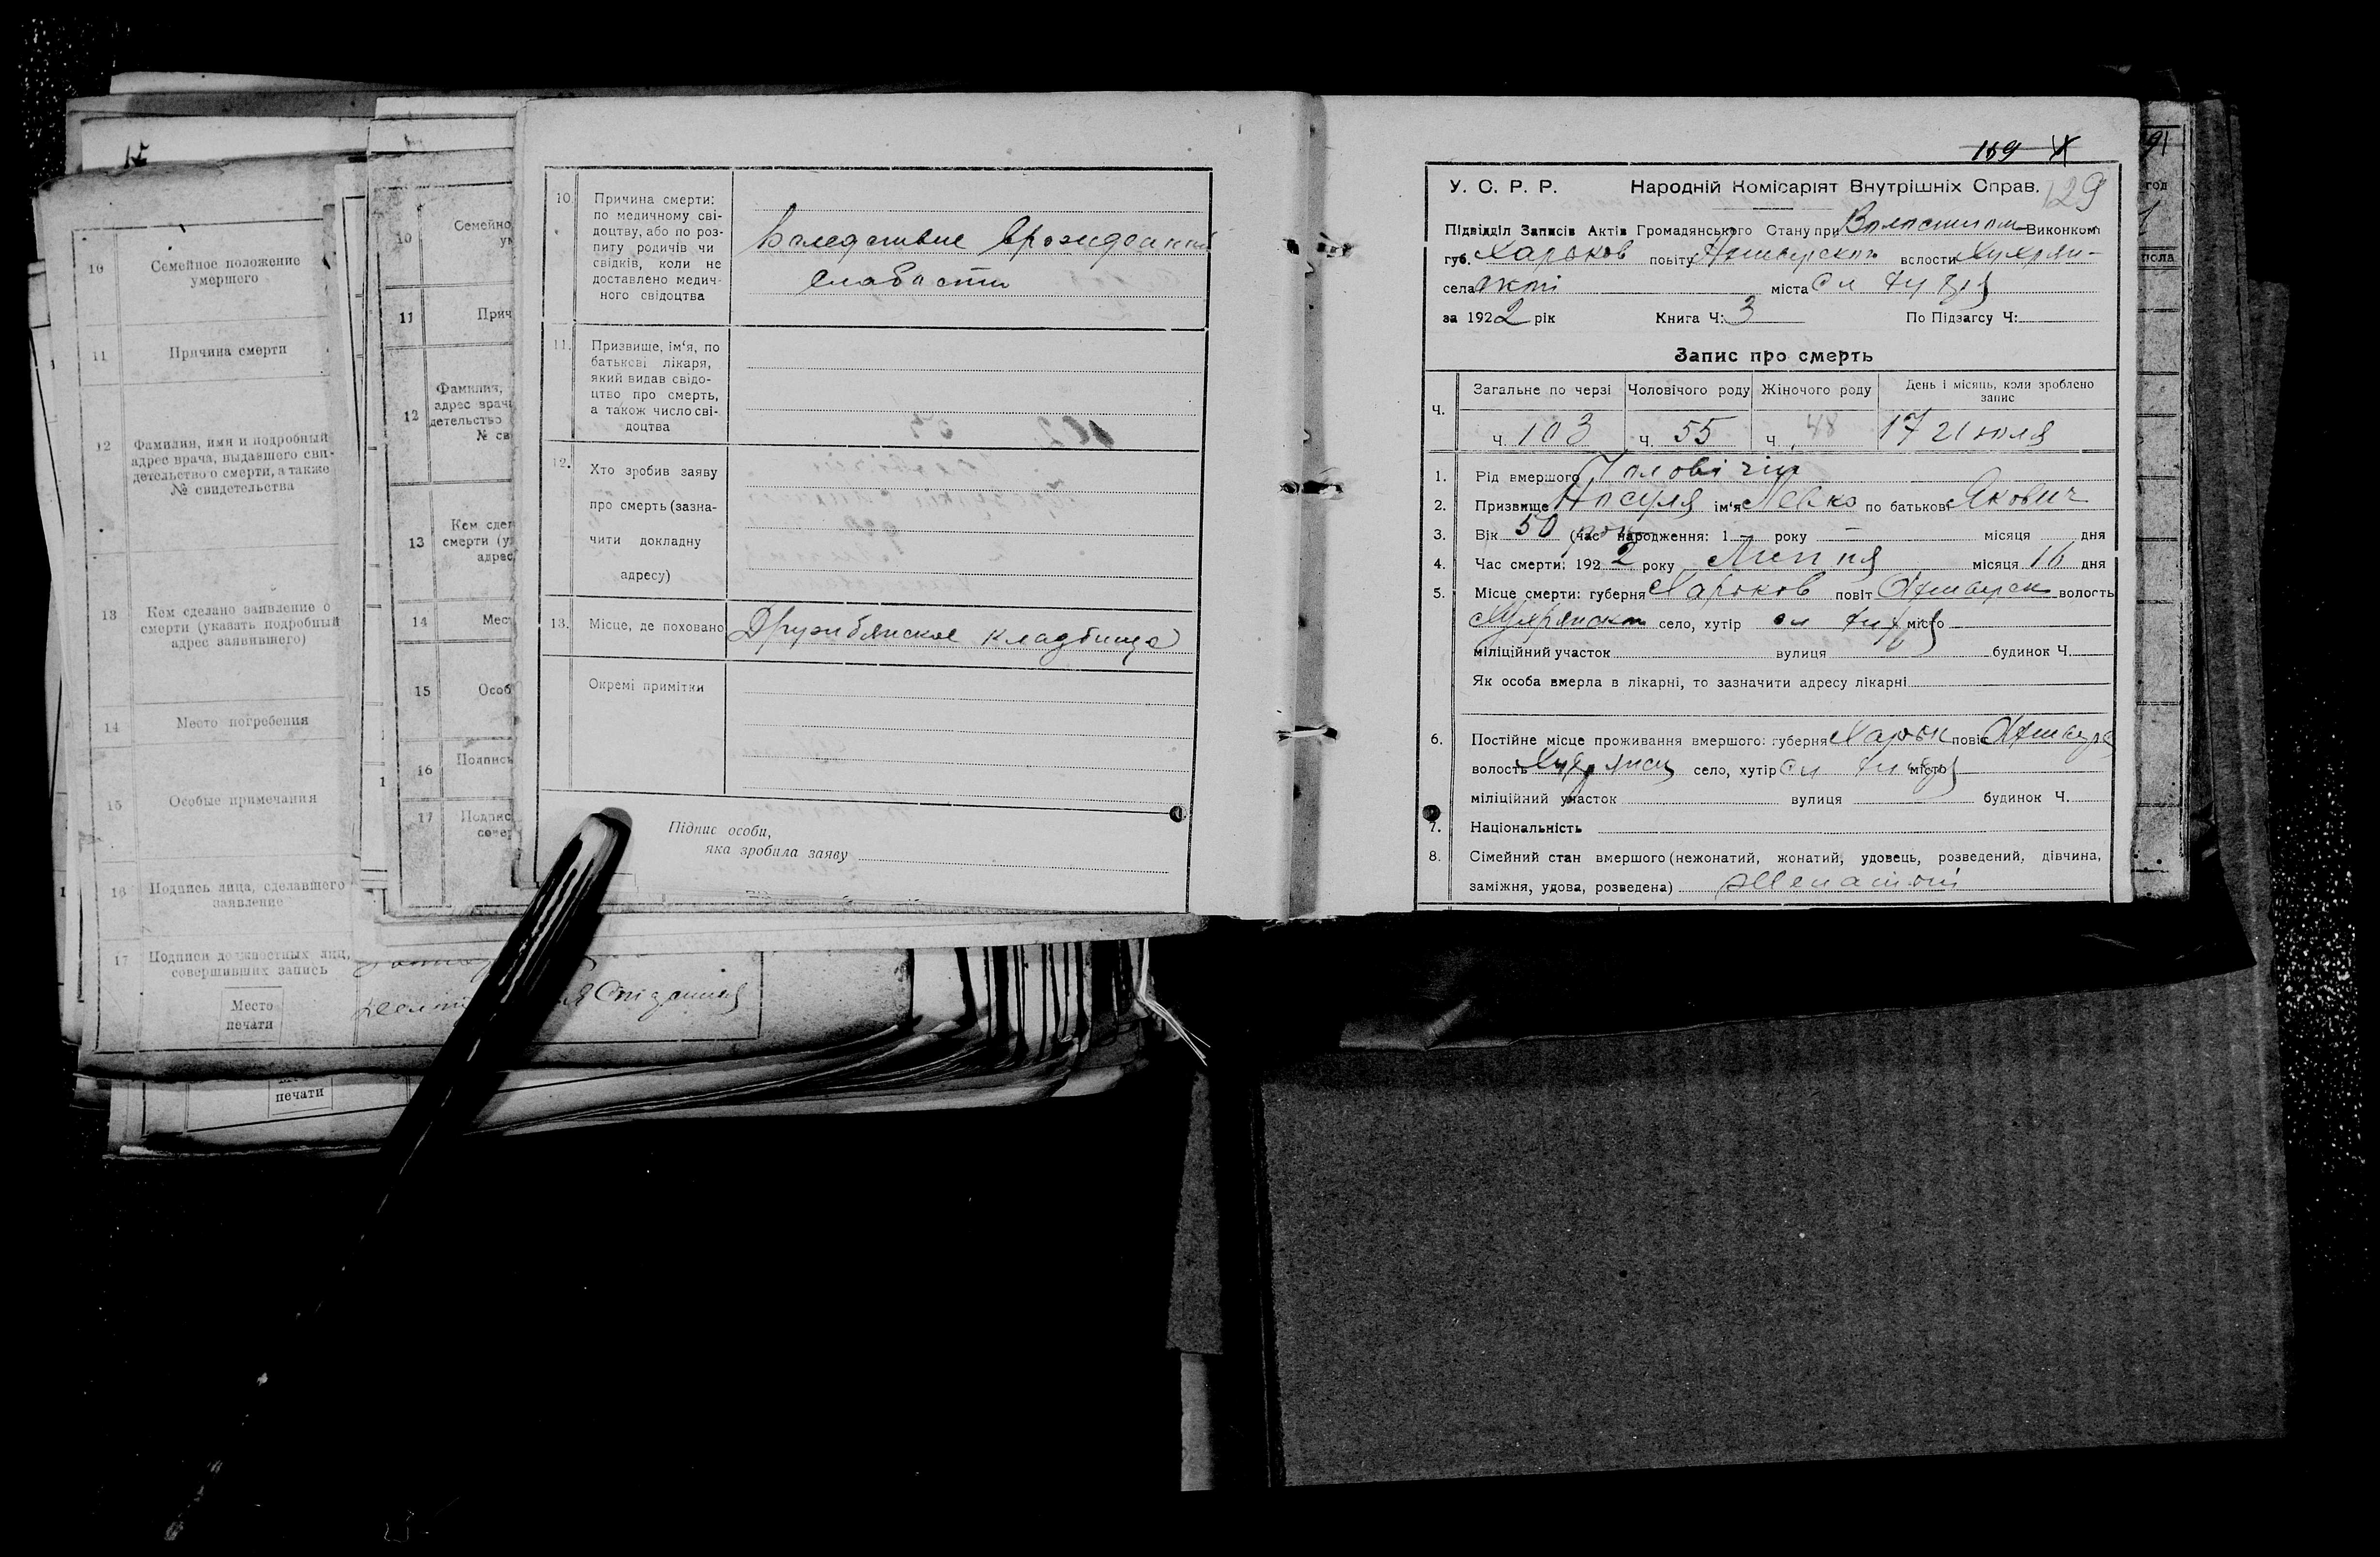 10 Семейное положение
умершего
11 Причина смерти
12 Фамилия, имя и подробный
адрес врача, выдавшего сви-
детельство о смерти, а также
№ свидетельства
13 Кем сделано заявление о
смерти (указать подробный
адрес заявившего)
14 Место погребения
15 Особые примечания
16 Подпись лица, сделавшего
заявление
17 Подписи должностных лиц,
совершивших запись
Место
печати
печати
10 Семейно
11 Прич
12 Фамилия,
адрес врач
детельство
№ св
13 Кем сдел
смерти (у
адрес
14 Мес
15 Особ
16 Подпись
17 Подпис
совер
10. Причина смерти:
по медичному сві-
доцтву, або по роз-
питу родичів чи
свідків, коли не
доставлено медич-
ного свідоцтва
Вследствие врожденной
слабости
11. Призвище, ім'я, по
батькові лікаря,
який видав свідо-
цтво про смерть,
а також число сві-
доцтва
12. Хто зробив заяву
про смерть (зазна-
чити докладну
адресу)
13. Місце, де поховано Дружбянское кладбище
Окремі примітки
Підпис особи,
яка зробила заяву
159 X
129
У. С. Р. Р. Народній Комісаріят Внутрішніх Справ.
Підвідділ Записів Актів Громадянського Стану при Волостном Виконком
губ. Харьков повіту Ахтырского волости Хухрян-
села ской міста сл
за 1922 рік Книга Ч: 3 По Підзагсу Ч:
Запис про смерть
Ч. Загальне по черзі Чоловічого роду Жіночого роду День і місяць, коли зроблено
запис
Ч. 103 Ч. 55 Ч. 48 17 Июля
1. Рід вмершого Чоловічий
2. Призвище Носуля ім'я Левко по батькові Якович
3. Вік 50 рок (час народження: 1 — року — місяця дня
4. Час смерти: 1922 року Липня місяця 16 дня
5. Місце смерти: губерня Харьков повіт Ахтырск волость
Хухрянск село, хутір сл місто
міліційний участок вулиця будинок Ч.
Як особа вмерла в лікарні, то зазначити адресу лікарні
6. Постійне місце проживання вмершого: губерня Харьк повіт Ахтырс
волость Хухрянск село, хутір сл місто
міліційний участок вулиця будинок Ч.
7. Національність
8. Сімейний стан вмершого (нежонатий, жонатий, удовець, розведений, дівчина,
заміжня, удова, розведена) Женатый
91
год
пола